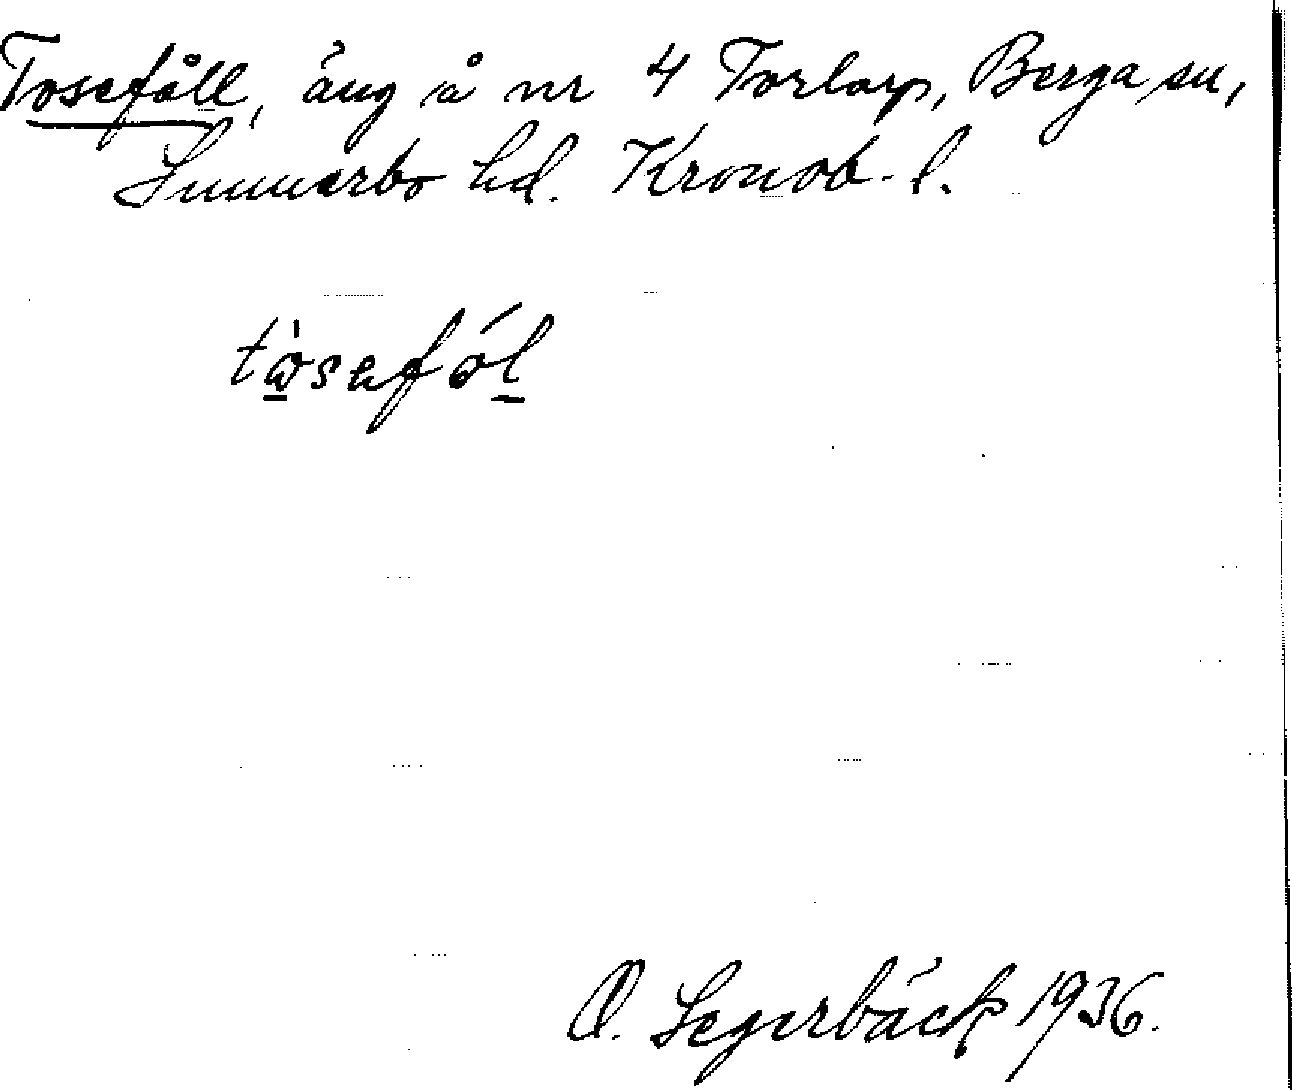 Tosefåll, äng å nr 4 Torlarp, Berga sn,
Sunnerbo hd. Kronob. l.
O. Segerbäck 1936.